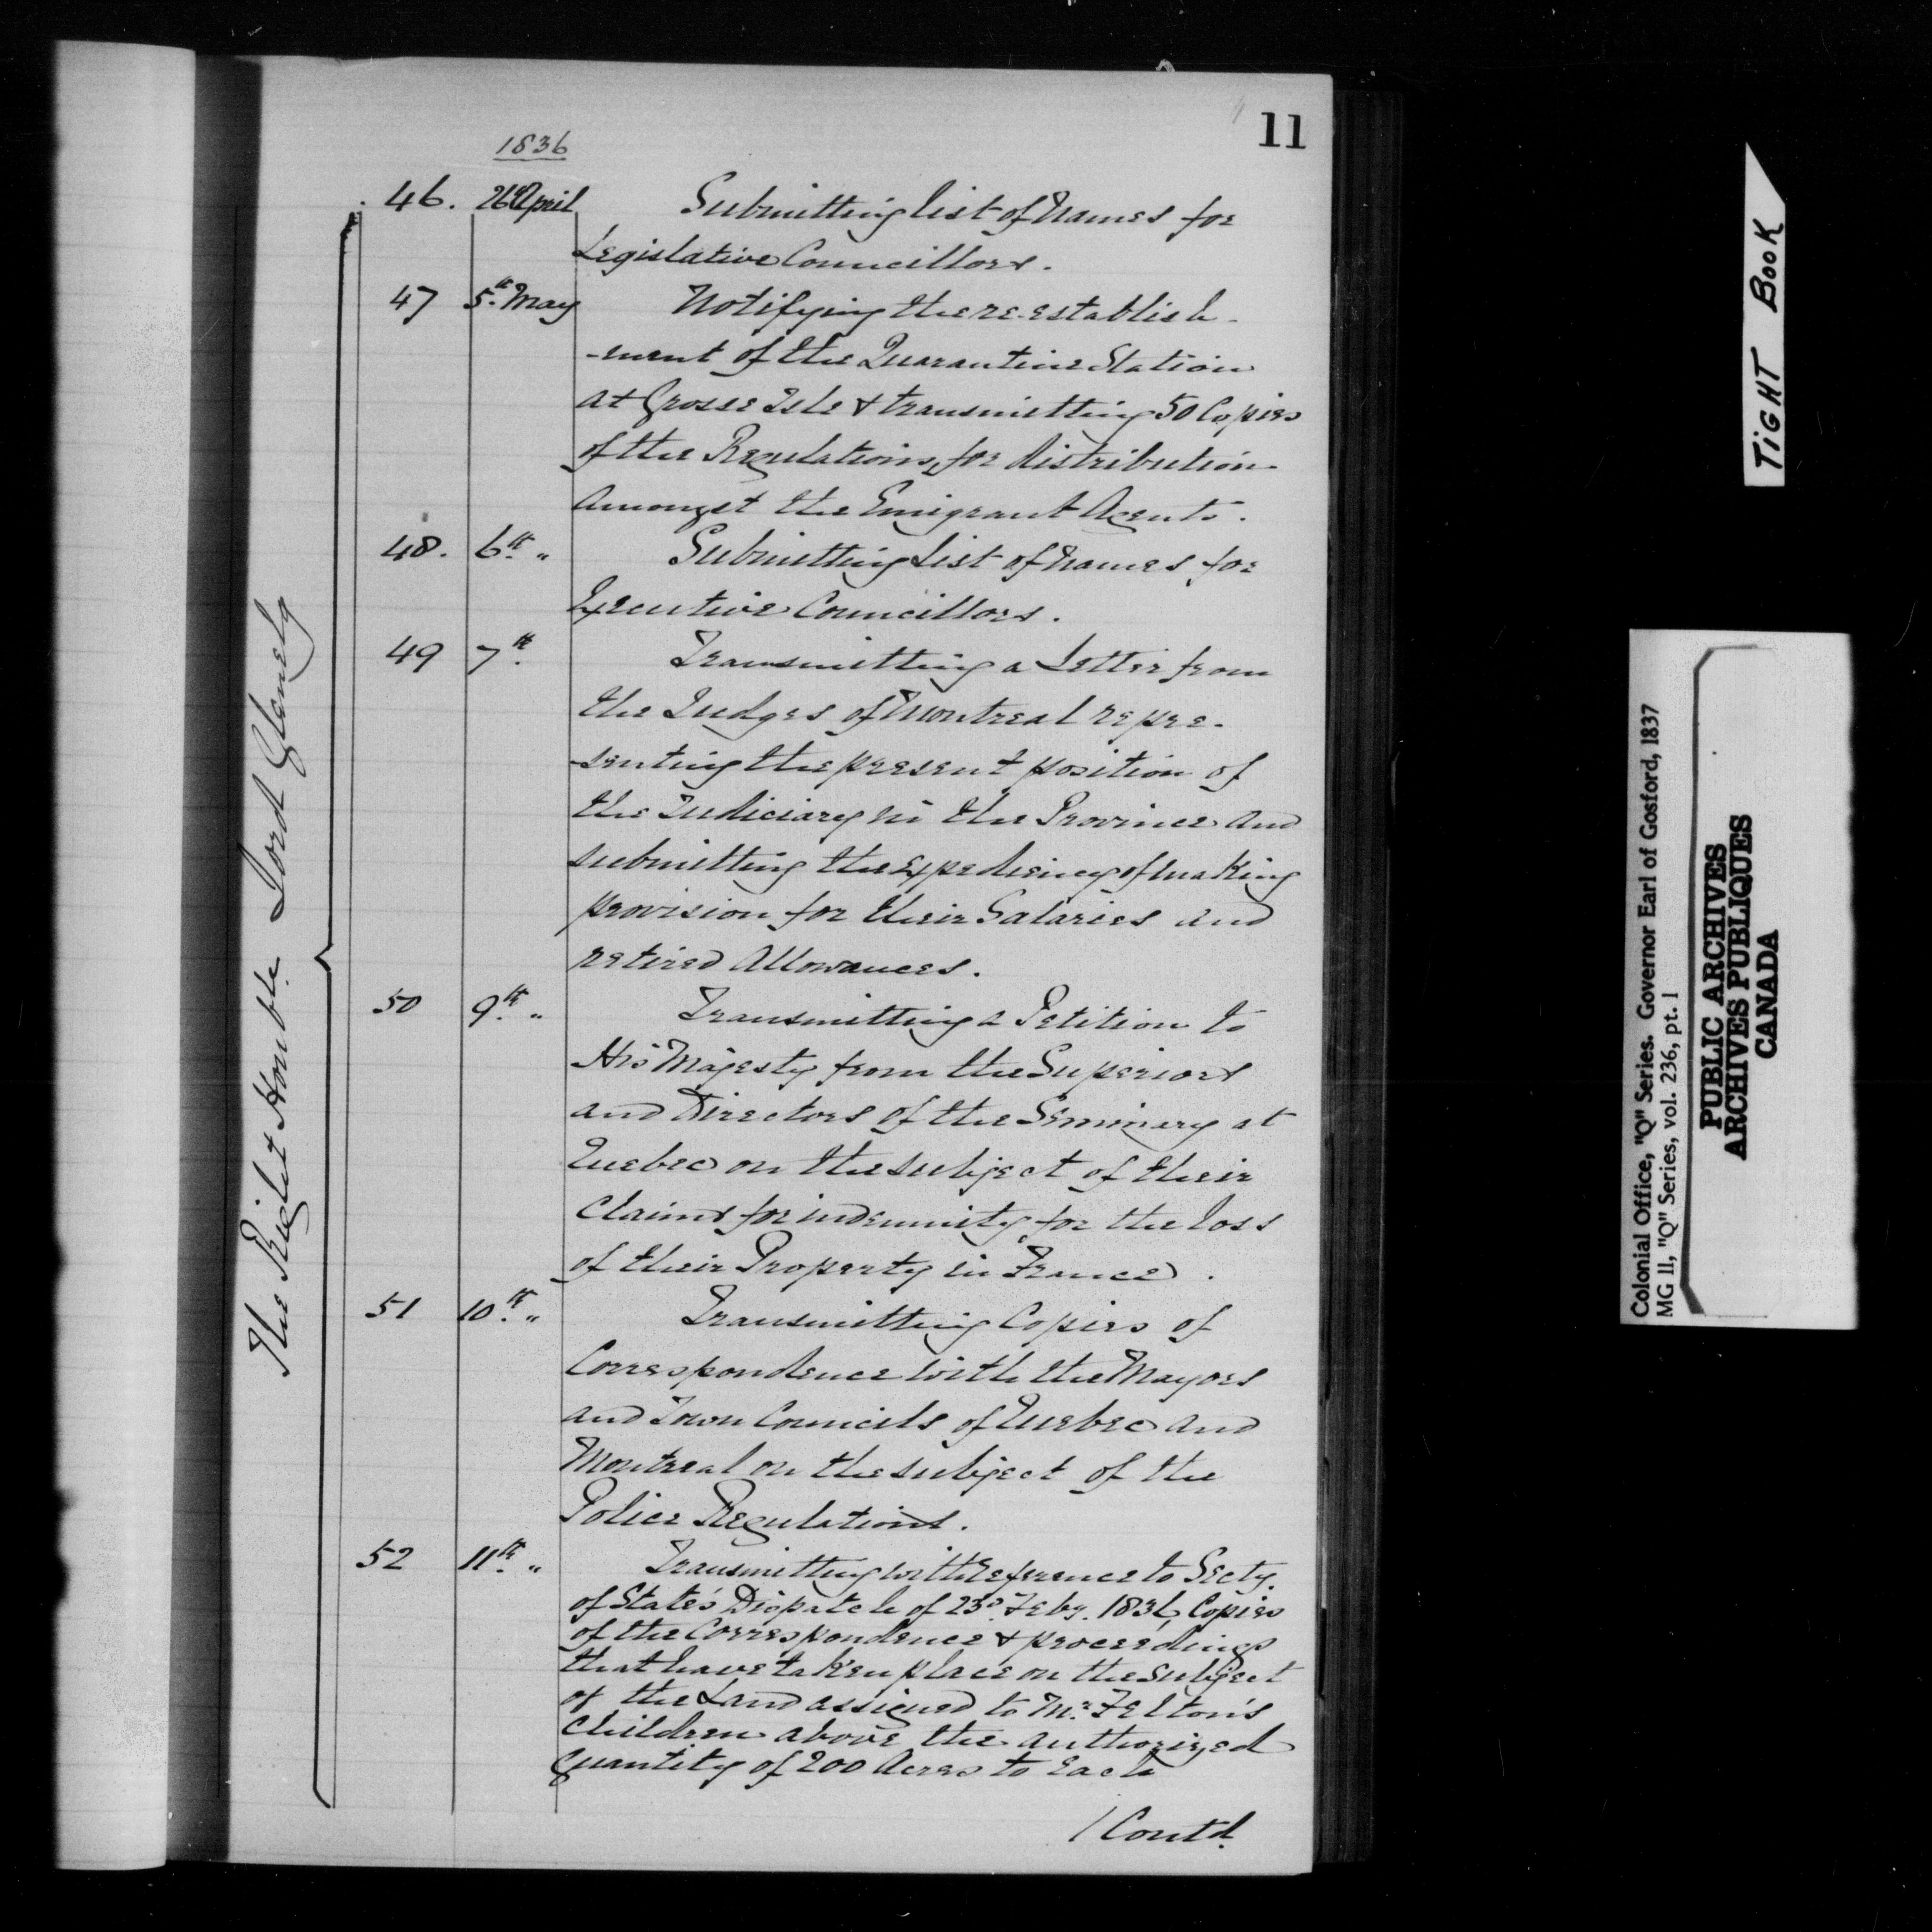 11
1836
The Right Honble Lord Glenelg
46. 26th April Submitting list of Names for
Legislative Councillors.
47 5th May Notifying the re-establish-
-ment of the Quarantine Station
at Grosse Isle & transmitting 50 Copies
of the Regulations, for distribution
amongst the Emigrant Agents.
48. 6th " Submitting List of Names for
Executive Councillors.
49 7th Transmitting a Letter from
the Judges of Montreal repre-
-senting the present position of
the Judiciary in the Province and
submitting the expediency of making
provision for their Salaries and
retired allowances.
50 9th " Transmitting a Petition to
His Majesty from the Superiors
and Directors of the Seminary at
Quebec on the subject of their
Claims for indemnity for the loss
of their Property in France.
51 10th " Transmitting Copies of
Correspondence with the Mayors
and Town Councils of Quebec and
Montreal on the subject of the
Police Regulations.
52 11th " Transmitting with reference to Secty.
of State's Dispatch of 23d Feby. 1836, Copies
of the Correspondence & proceedings
that have taken place on the subject
of the Land assigned to Mr. Felton's
Children above the authorized
quantity of 200 Acres to Each
/Contd.
TIGHT BOOK
Colonial Office, "Q" Series. Governor Earl of Gosford, 1837
MG 11, "Q" Series, vol. 236, pt. 1
PUBLIC ARCHIVES
ARCHIVES PUBLIQUES
CANADA